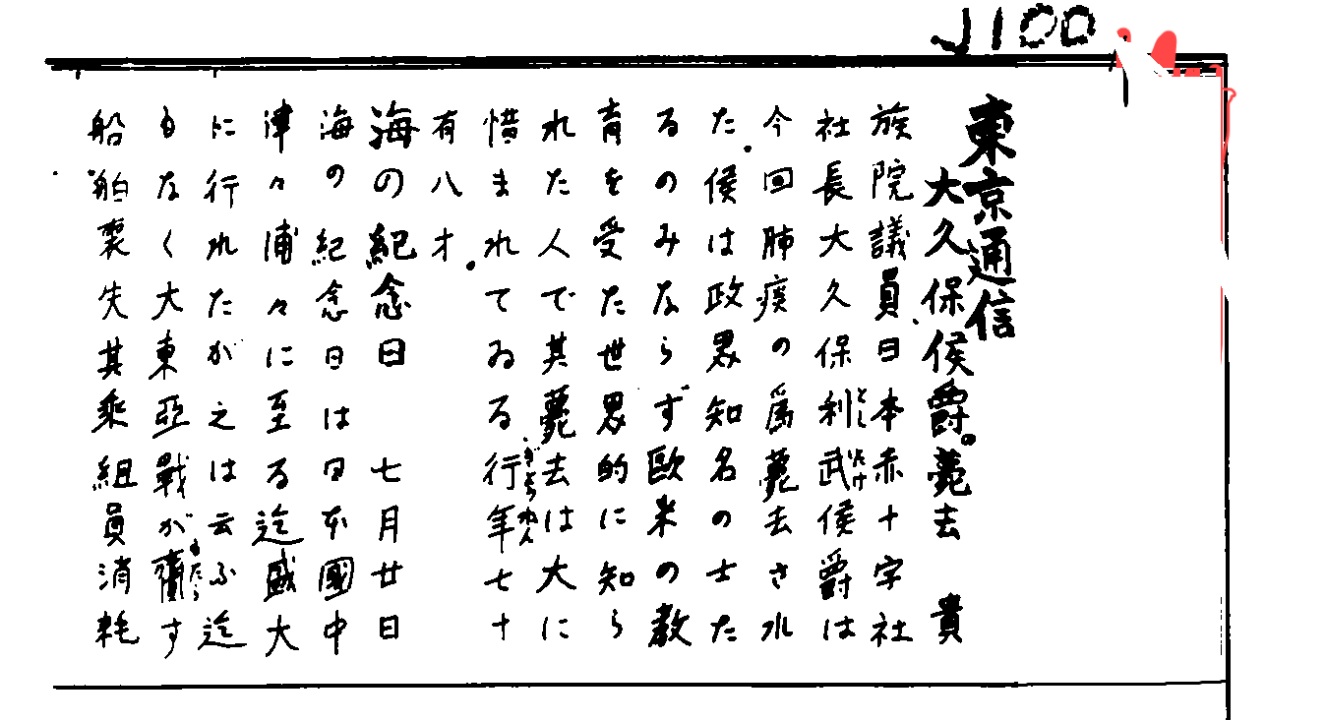 J100
東京通信
大久保侯爵薨去 貴
族院議員日本赤十字社
社長大久保利武侯爵は
今回肺疾の為薨去され
た。侯は政界知名の士た
るのみならず欧米の教
育を受た世界的に知ら
れた人で其薨去は大に
惜まれてゐる行年七十
有八才。
海の紀念日 七月廿日
海の紀念日は日本國中
津々浦々に至る迄盛大
に行れたが之は云ふ迄
もなく大東亞戰が齎す
船舶喪失其乘組員消耗